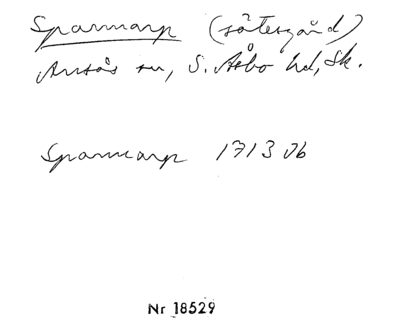 Spannarp (sätesgård)
Ausås sn, S. Åsbo hd, Sk.
Spannarp 1713 Jb
Nr 18529